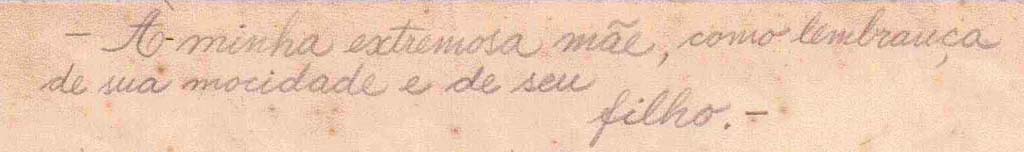 – À minha extremosa mãe, como lembrança
de sua mocidade e de seu
filho. –